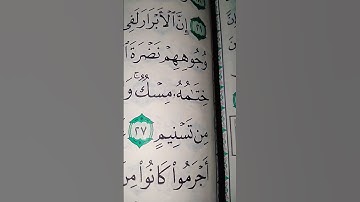 ٢١ إِنَّ ٱلۡأَبۡرَارَ لَفِي
وُجُوهِهِمۡ نَضۡرَةَ
خِتَٰمُهُۥ مِسۡكٞۚ وَ
مِن تَسۡنِيمٍ ٢٧
أَجۡرَمُواْ كَانُواْ مِنَ